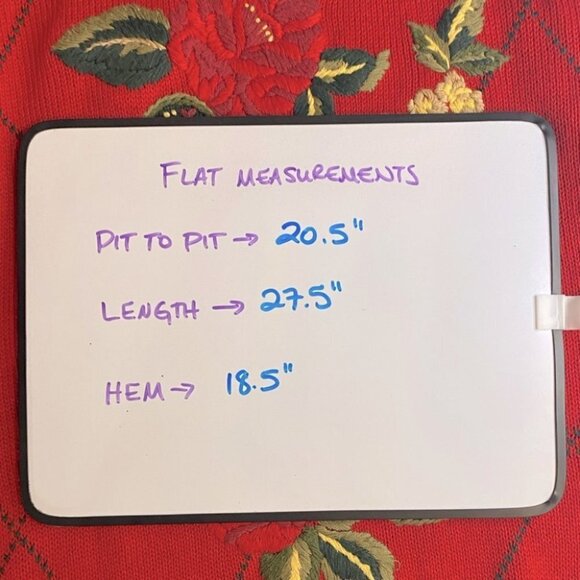 FLAT MEASUREMENTS
PIT TO PIT → 20.5"
LENGTH → 27.5"
HEM → 18.5"